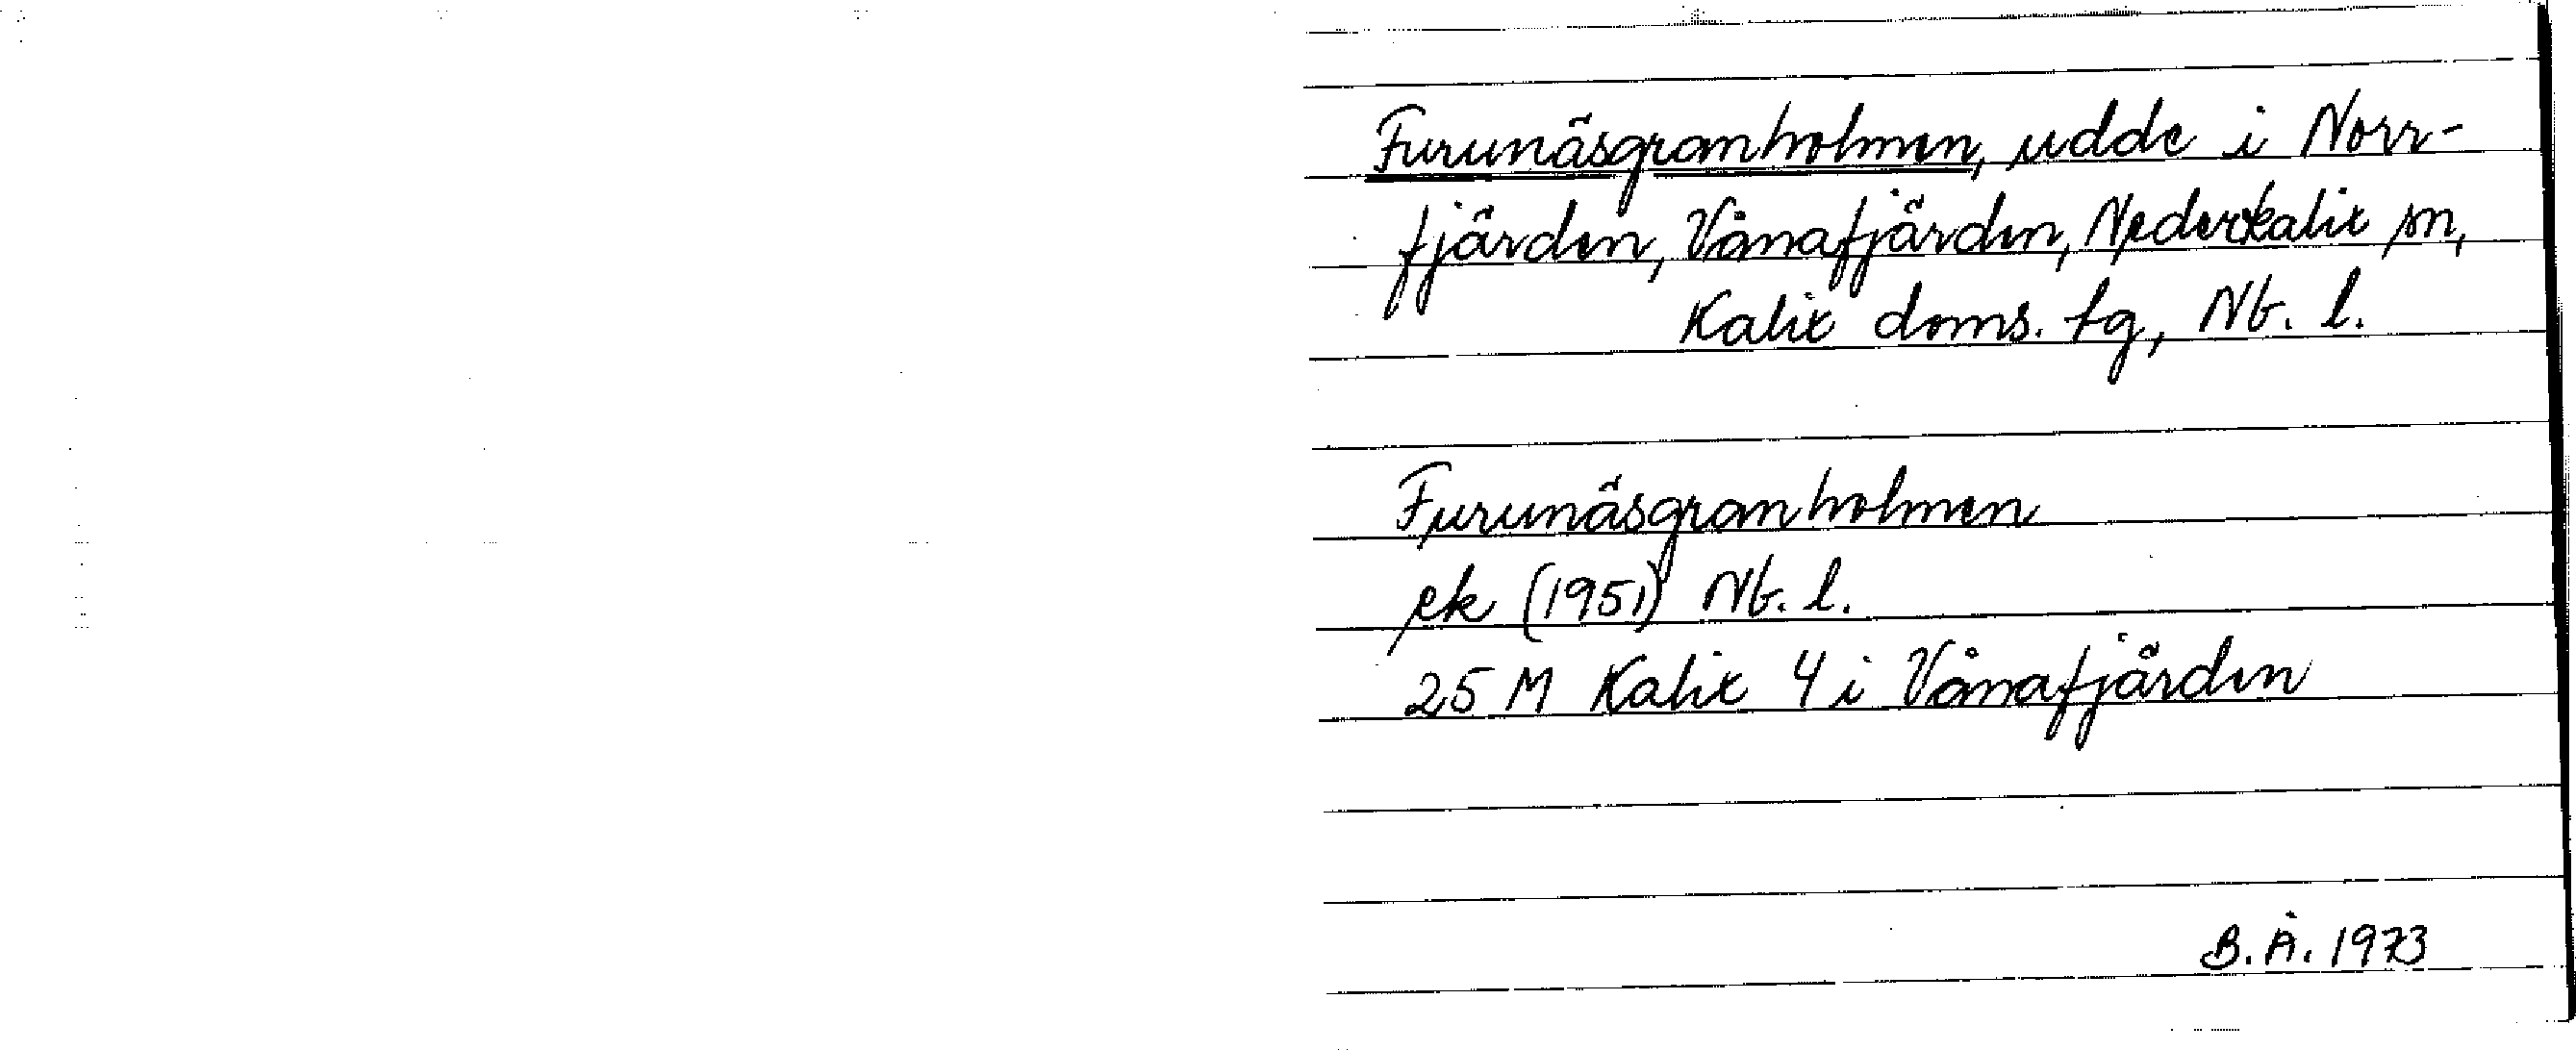 Furunäsgranholmen, udde i Norr-
fjärden, Vånafjärden, Nederkalix sn,
Kalix doms. tg, Nb. l.
Furunäsgranholmen
ek (1951) Nb. l.
25 M Kalix 4 i Vånafjärden
B.Å. 1973